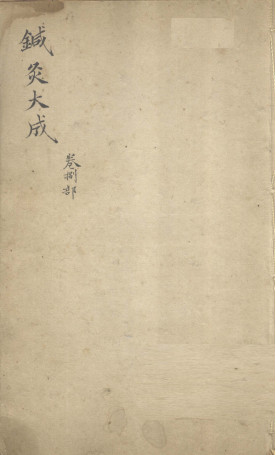 鍼灸大成
卷捌部